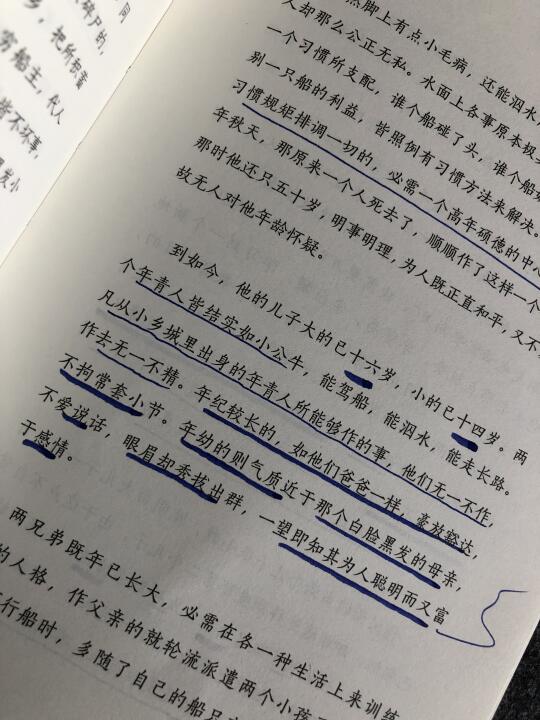 同
乡，把所知者
穷船主，代人
照脚上有点小毛病，还能泅水，
人却那么公正无私。水面上各事原本极
一个习惯所支配，谁个船碰了头，谁个船
别一只船的利益，皆照例有习惯方法来解决。
习惯规矩排调一切的，必需一个高年硕德的中心
年秋天，那原来一个人死去了，顺顺作了这样一个
那时他还只五十岁，明事明理，为人既正直和平，又不
故无人对他年龄怀疑。
到如今，他的儿子大的已十六岁，小的已十四岁。两
个年青人皆结实如小公牛，能驾船，能泅水，能走长路。
凡从小乡城里出身的年青人所能够作的事，他们无一不作，
作去无一不精。年纪较长的，如他们爸爸一样，豪放豁达，
不拘常套小节。年幼的则气质近于那个白脸黑发的母亲，
不爱说话，眼眉却秀拔出群，一望即知其为人聪明而又富
于感情。
两兄弟既年已长大，必需在各一种生活上来训练
的人格，作父亲的就轮流派遣两个小孩
行船时，多随了自己的船只